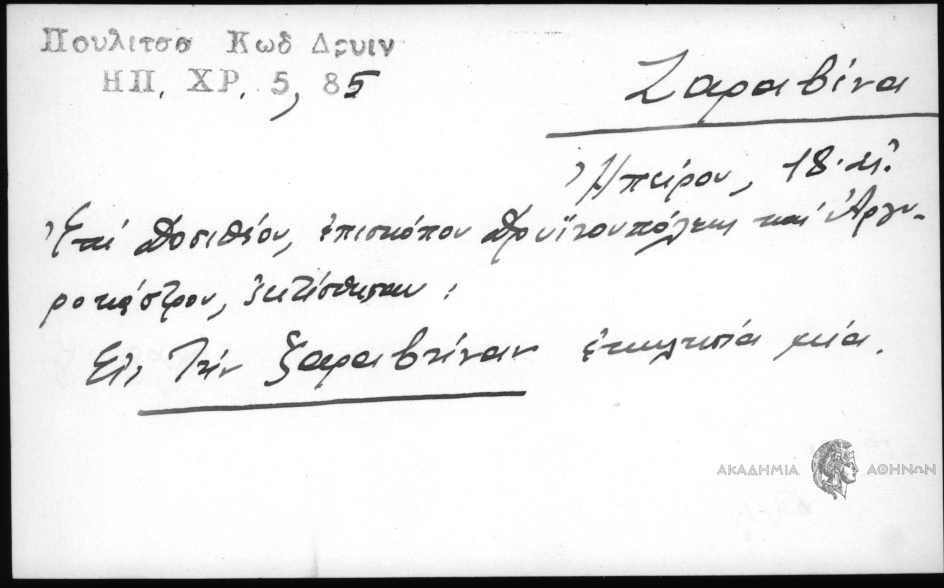 Πουλιτσα Κωδ Δρυιν
ΗΠ. ΧΡ. 5, 85
Ζαραβίνα
Ἠπείρου, 18. αἰ.
Ἐπί Δοσιθέου, ἐπισκόπου Δρυϊνουπόλεως καί Ἀργυ-
ροκάστρου, ἐκτίσθησαν :
Εἰς τήν ζαραβίναν ἐκκλησία μία.
ΑΚΑΔΗΜΙΑ ΑΘΗΝΩΝ